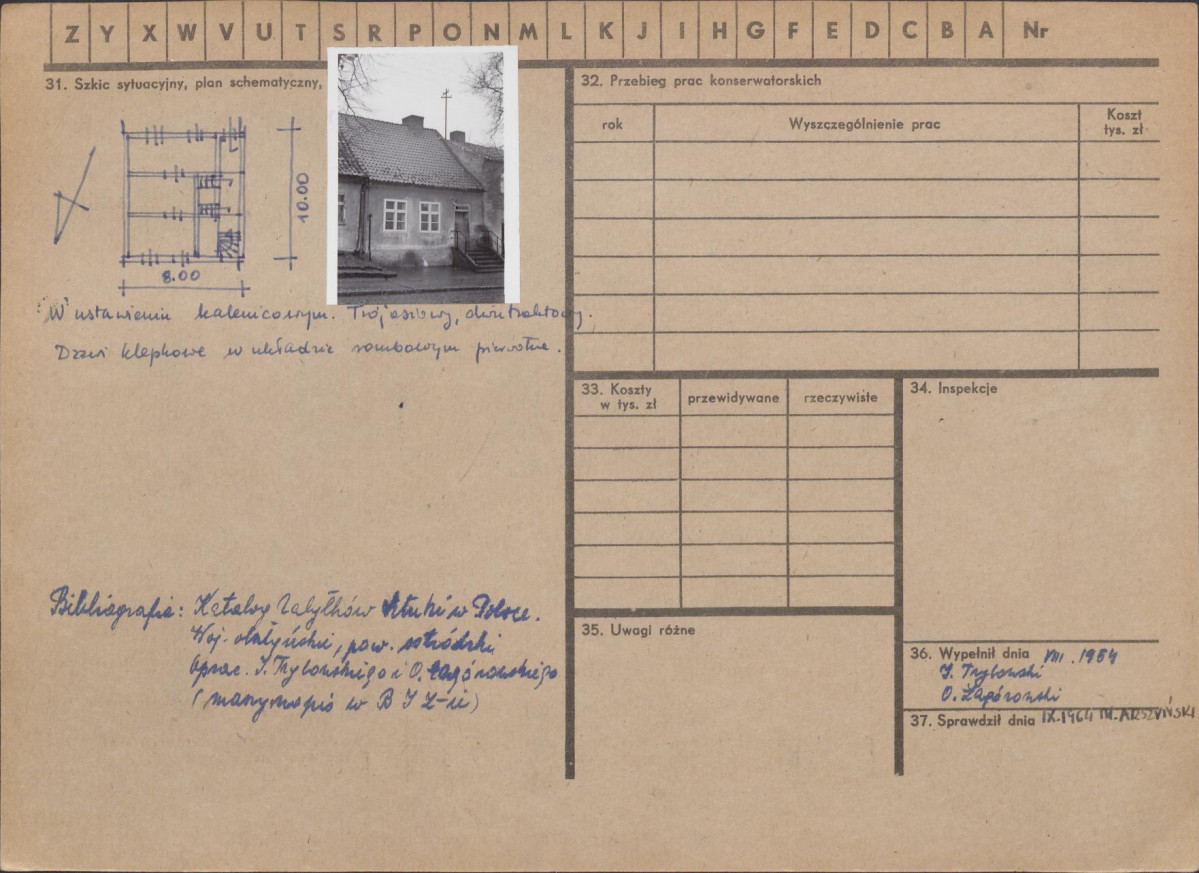 Z Y X W V U T S R P O N M L K J I H G F E D C B A Nr
31. Szkic sytuacyjny, plan schematyczny,
10.00
8.00
W ustawieniu kalenicowym. Trójosiowy, dwutraktowy.
Drzwi klepkowe w układzie rombowym pierwotne.
Bibliografia: Katalog Zabytków Sztuki w Polsce.
Woj. olsztyńskie, pow. ostródzki
oprac. J. Frycowskiego i O. Zagórowskiego
(maszynopis w B I Z-ie)
32. Przebieg prac konserwatorskich
rok Wyszczególnienie prac Koszt
tys. zł
33. Koszty
w tys. zł
przewidywane rzeczywiste
34. Inspekcje
35. Uwagi różne
36. Wypełnił dnia VIII.1964
O. Zagórowski
37. Sprawdził dnia IX.1964 M. ARSZYŃSKI